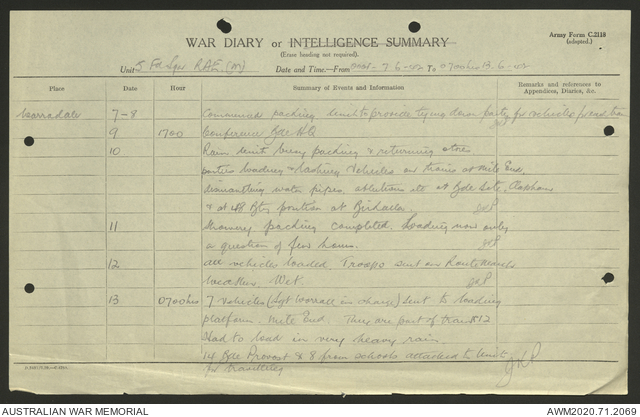 WAR DIARY or INTELLIGENCE SUMMARY
(Erase heading not required).
Army Form C.2118
(adapted.)
Unit 5 Fd Sqn RAE (M) Date and Time—From 0001 - 7-6-42 To 0700 hrs 13-6-42
Place Date Hour Summary of Events and Information Remarks and references to Appendices, Diaries, &c.
7-8 Commenced packing Unit to provide tying down party for vehicles
9 1700 Conference Bde HQ
10 Rain. Unit busy packing & returning stores
parties loading & lashing vehicles on trains at Mile End,
dismantling water pipes, ablutions etc at Bde Site,
& at 48 Bty position at Birdalla.
11 packing completed. Loading now only
a question of few hours.
12 All vehicles loaded. Troops sent on Route March
weather. Wet.
13 0700 hrs 7 Vehicles (Sgt Worrall in charge) sent to loading
platform Mile End. They are part of train K12
Had to load in very heavy rain.
14 Bde Provost & 8 from schools attached to Unit
for
AUSTRALIAN WAR MEMORIAL
AWM2020.71.2069